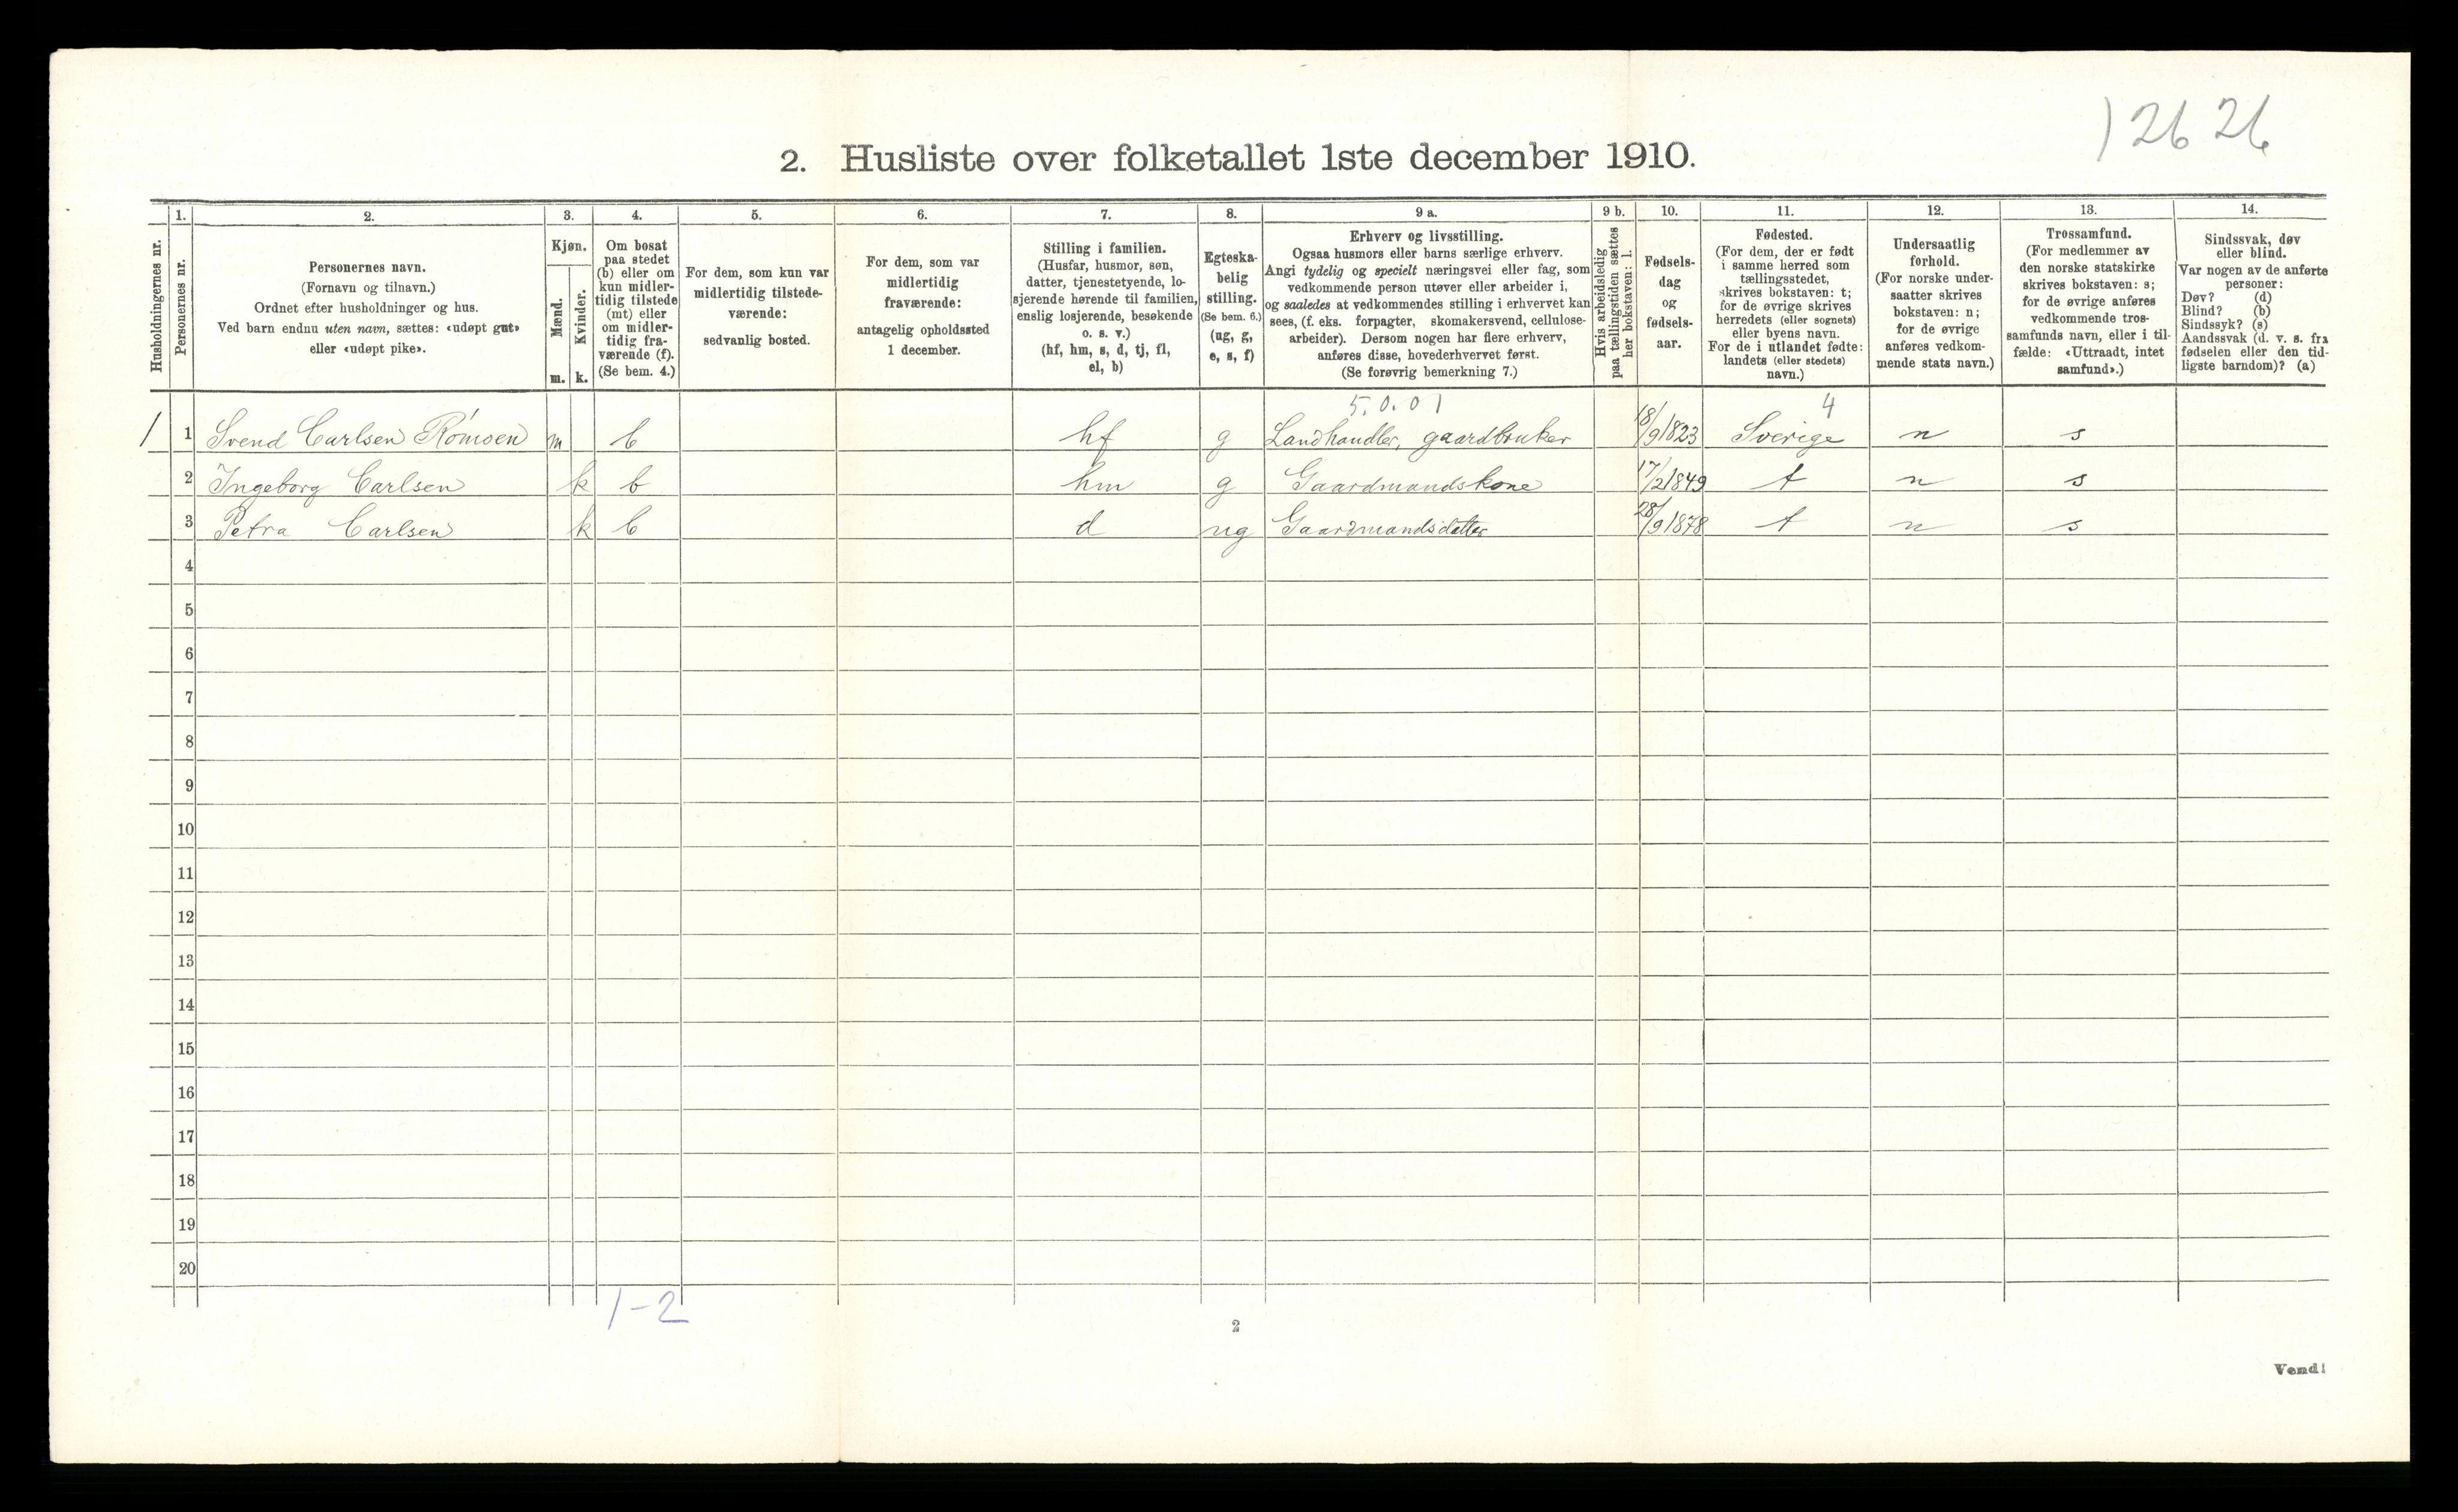 ) 26 26
2. Husliste over folketallet 1ste december 1910.
1. 2. 3. 4. 5. 6. 7. 8. 9 a. 9 b. 10. 11. 12. 13. 14.
Husholdningernes nr.
Personernes nr.
Personernes navn.
(Fornavn og tilnavn.)
Ordnet efter husholdninger og hus.
Ved barn endnu uten navn, sættes: «udøpt gut»
eller «udøpt pike».
Kjøn.
Mænd.
Kvinder.
m. k.
Om bosat
paa stedet
(b) eller om
kun midler-
tidig tilstede
(mt) eller
om midler-
tidig fra-
værende (f).
(Se bem. 4.)
For dem, som kun var
midlertidig tilstede-
værende:
sedvanlig bosted.
For dem, som var
midlertidig
fraværende:
antagelig opholdssted
1 december.
Stilling i familien.
(Husfar, husmor, søn,
datter, tjenestetyende, lo-
sjerende hørende til familien,
enslig losjerende, besøkende
o. s. v.)
(hf, hm, s, d, tj, fl,
el, b)
Egteska-
belig
stilling.
(Se bem. 6.)
(ug, g,
e, s, f)
Erhverv og livsstilling.
Ogsaa husmors eller barns særlige erhverv.
Angi tydelig og specielt næringsvei eller fag, som
vedkommende person utøver eller arbeider i,
og saaledes at vedkommendes stilling i erhvervet kan
sees, (f. eks. forpagter, skomakersvend, cellulose-
arbeider). Dersom nogen har flere erhverv,
anføres disse, hovederhvervet først.
(Se forøvrig bemerkning 7.)
Hvis arbeidsledig
paa tællingstiden sættes
her bokstaven: l.
Fødsels-
dag
og
fødsels-
aar.
Fødested.
(For dem, der er født
i samme herred som
tællingsstedet,
skrives bokstaven: t;
for de øvrige skrives
herredets (eller sognets)
eller byens navn.
For de i utlandet fødte:
landets (eller stedets)
navn.)
Undersaatlig
forhold.
(For norske under-
saatter skrives
bokstaven: n;
for de øvrige
anføres vedkom-
mende stats navn.)
Trossamfund.
(For medlemmer av
den norske statskirke
skrives bokstaven: s;
for de øvrige anføres
vedkommende tros-
samfunds navn, eller i til-
fælde: «Uttraadt, intet
samfund».)
Sindssvak, døv
eller blind.
Var nogen av de anførte
personer:
Døv? (d)
Blind? (b)
Sindssyk? (s)
Aandssvak (d. v. s. fra
fødselen eller den tid-
ligste barndom)? (a)
5.0.01 4
1 1 Svend Carlsen Rómoen m b hf g Landhandler, gaardbruker 18/9 1823 Sverige n s
2 Ingeborg Carlsen k b hm g Gaardmandskone 17/2 1849 t n s
3 Petra Carlsen k b d ug Gaardmandsdatter 28/9 1878 t n s
4
5
6
7
8
9
10
11
12
13
14
15
16
17
18
19
20
1-2
2
Vend!